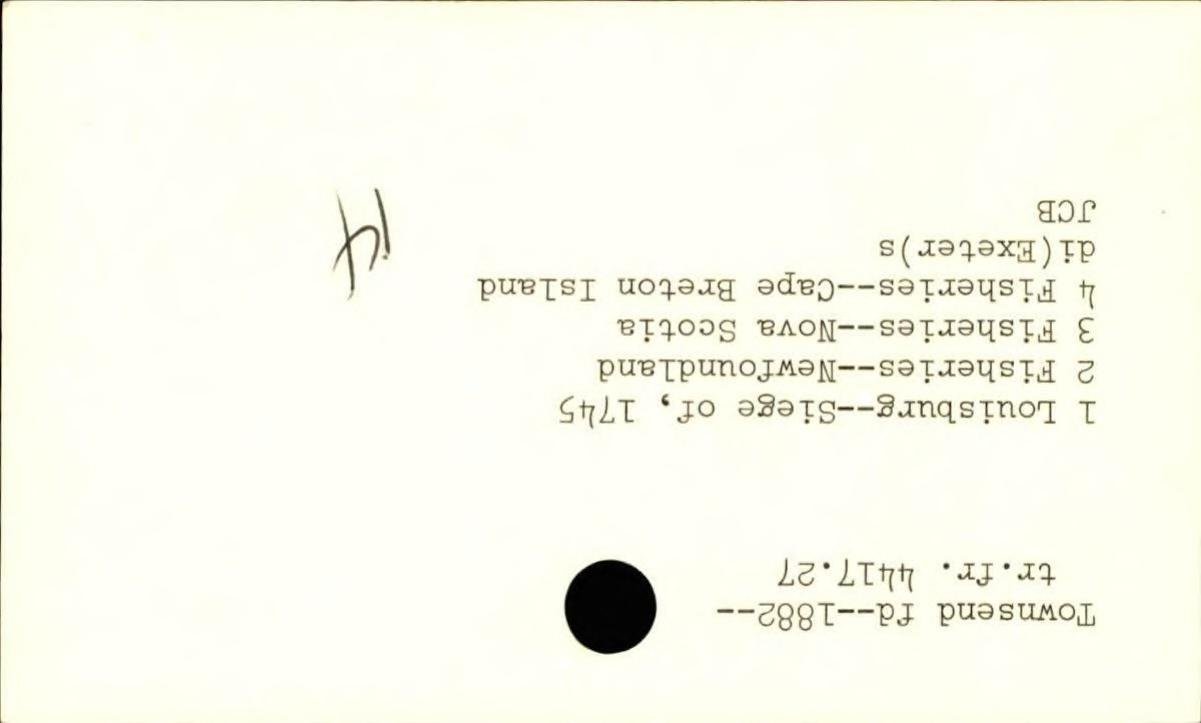 Townsend fd--1882--
tr.fr. 4417.27
1 Louisburg--Siege of, 1745
2 Fisheries--Newfoundland
3 Fisheries--Nova Scotia
4 Fisheries--Cape Breton Island
di(Exeter)s
JCB